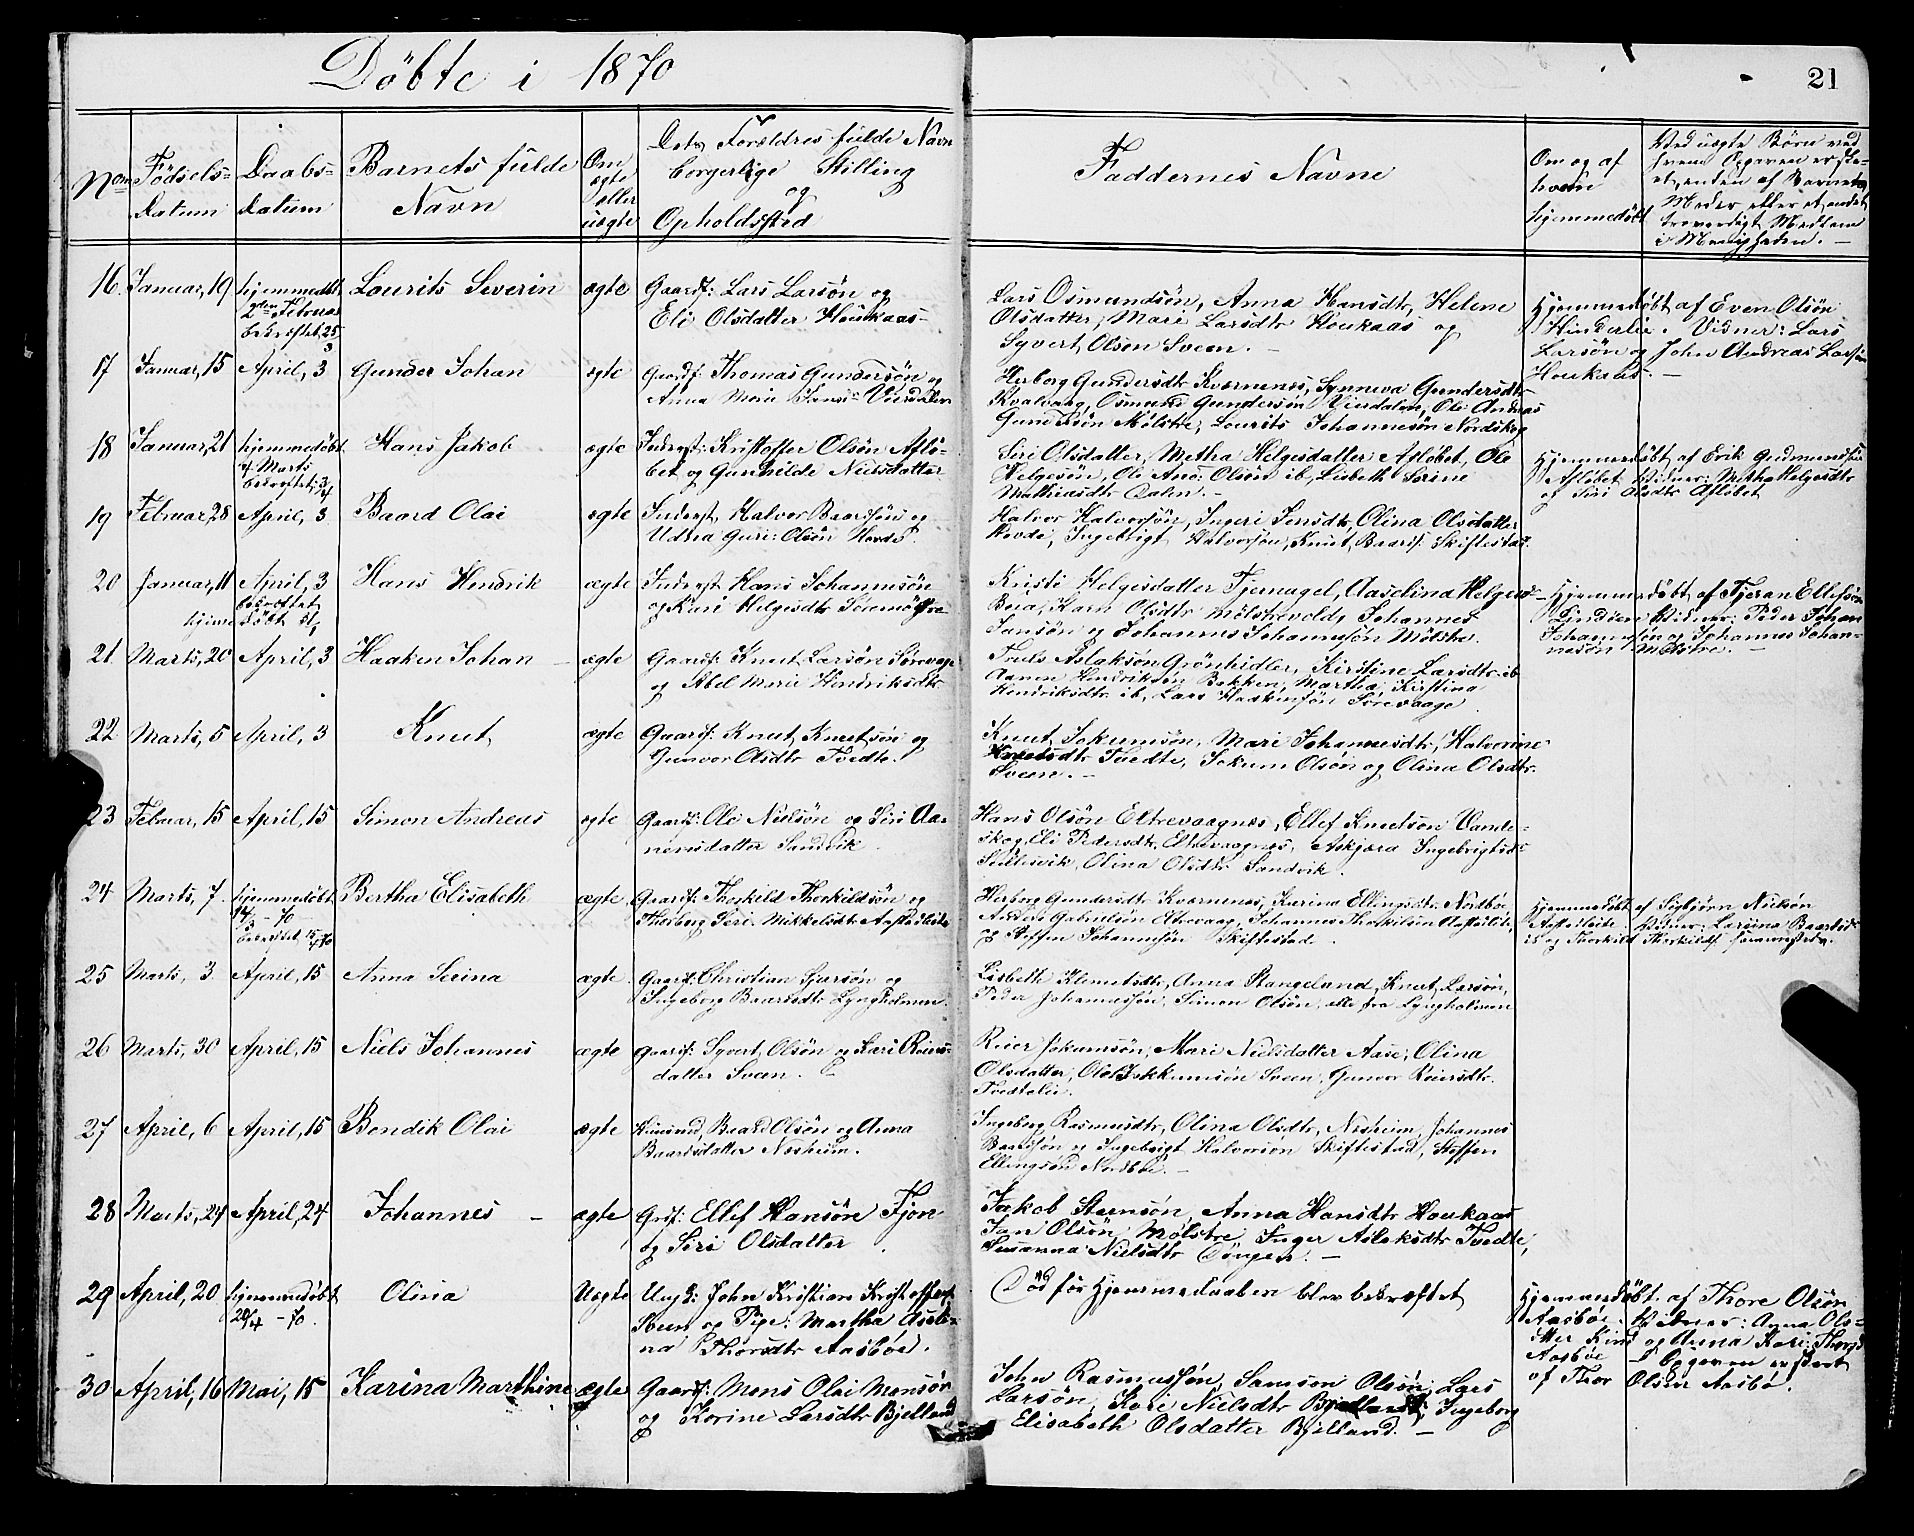 Döbte i 1870
21
Nom
Födsels-
Datum
Daabs-
Datum
Barnets fulde
Navn
Om
ægte
eller
uægte
Dets Forældres fulde Navn
borgerlige Stilling
og
Opholdssted
Faddernes Navne
Om og af
hvem
hjemmedöbt
Ved uægte Börn ved
hvem Opgaven er ske-
et, enden af Barnets
Moder eller et andet
troverdigt Medlem
i Menigheden. —
16. Januar, 19 hjemmedöbt Lourits Severin ægte Gaardf: Lars Larsön og
2den Februar Eli Olsdatter Houkaas-
bekræftet 25/3
Lars Osmundsön, Anna Hansdtr, Helene
Olsdatter, Mari Larsdtr Houkaas og
Syvert Olsen Sveen. —
Hjemmedöbt af Even Olsön
Hinderlie. Vidner: Lars
Larsön og John Andreas Larsön
Houkaas. —
17 Januar, 15 April, 3 Gunder Johan ægte Gaardf: Thomas Gundersön og
Anna Marie Jans- Viindalen
Herborg Gundersdtr Kvernenes, Synneva Gundersdtr
Kvalvaag, Osmund Gundersön Viindalen, Ole Andreas
Gundersön Mölstre, Lourits Johannesön Nordskog
18 Januar, 21 hjemmedöbt Hans Jakob ægte Inderst: Kristoffer Olsön Aflö-
4 Marts bet og Gunhilde Nielsdatter
bekræftet: 3/4
Siri Olsdatter, Metha Helgesdatter Aflöbet, Ole
Helgesön, Ole And: Olsön ib, Lisbeth Serine
Mathiasdtr Dalen. —
Hjemmedöbt af Erik Gudmundsön
Aflöbet Vidner: Metha Helgesdtr
og Siri Olsdtr Aflöbet
19 Februar, 28 April, 3 Baard Olai ægte Inderst, Halvor Baardsön og
Guri: Olsön Hovde.
Halvor Halvorsön, Ingeri Jensdtr, Olina Olsdatter
Hovde, Ingebrigt Halvorsön, Knut Baards: Skiftestad.
20 Januar, 11 April, 3 Hans Hendrik ægte Inderst Hans Johannesön
bekræftet og Kari Helgesdtr
hjemme döbt
Kristi Helgesdatter Tjernagel, Aaselina Helges-
Bua, Karn Olsdtr Mölstrevold, Johannes
Jansön og Johannes Johannesön Mölster.
Hjemmedöbt af Tjeran Ellefsön
Lindöen Vidner: Peder Johan
Johannesön og Johannes Johan-
nesön Mölstre. —
21. Marts, 20 April, 3 Haaken Johan — ægte Gaardf: Knut Larsön Sörevaag
og Abel Marie Hendriksdtr
Truls Aslaksön Grönlidler, Kirstine Larsdtr ib
Aanen Hendriksön Bakken, Martha Kirstina
Hendriksdtr ib, Lars Haakensön Sörevaage
22 Marts, 5 April, 3 Knut ægte Gaardf: Knut Knutsön og
Gunvor Olsdtr Tvedte.
Knut Jokumsön, Mari Johannesdtr, Halvorine
Knutsdtr Tvedte, Jokum Olsön og Olina Olsdtr.
Sveen. —
23 Februar, 15 April, 15 Simon Andreas ægte Gaardf: Ole Nielsön og Siri Aa-
nensdatter Sandvik.
Hans Olsön Eltrevaagnes, Ellef Knutsön Vande-
skog, Eli Pedersdtr. Eltrevaagnes, Askjæra Ingebrigtsd-
Olina Olsdtr Sandvik.
24 Marts, 7. hjemmedöbt Bertha Elisabeth ægte Gaardf: Thorkild Thorkildsön og
14/3 – 70 Thorborg Seri: Mikkelsdtr Aaftedleite
bekræftet 15/4 70
Herborg Gundersdtr Kvernenes, Karina Ellingsdtr Nordböe
Anders Gabrielsön Eltrevaag, Johannes Thorkilsön Aafteleite,
og Steffen Johannesön Skiftestad.
Hjemmedöbt af Sigbjörn Nielsön
Aafteleite. Vidner: Larsina Baardsd.
ib og Thorkild Thorkilds:
25 Marts, 3. April, 15 Anna Serina ægte Gaardf: Christian Sjursön og
Ingeborg Baardsdtr Lyngholmen.
Lisbeth Klemetsdtr, Anna Stangeland, Knut Larsön,
Peder Johannesön, Simon Olsön, alle fra Lyngholmen
26 Marts, 30 April, 15 Niels Johannes ægte Gaardf: Syvert Olsön og Kari Reiers-
datter Sveen.
Reier Jokumsön, Mari Nielsdatter Aase, Olina
Olsdatter, Ole Jokkumsön Sveen, Gunvor Reiersdtr.
Tvedtelie.
27 April, 6 April, 15 Bendik Olai ægte Huusmd, Baard Olsön og Anna
Baardsdatter Nesheim.
Ingeborg Rasmusdtr, Olina Olsdtr, Nesheim, Johannes
Baardsön og Ingebrigt Halvorsön Skiftestad, Steffen
Ellingsön Nordböe. —
28 Marts, 24 April, 24 Johannes — ægte Grdf: Ellef Hansöne Fjon
og Siri Olsdatter.
Jakob Steensön, Anna Hansdtr Houkaas
Jan Olsön Mölstre Inger Aslaksdtr Tvedte,
Susanna Nielsdtr Döngen. —
29 April, 20 hjemmedöbt Olina Uægte Ungk: John Kristian Kristoffers:
20/4 – 70. og Pige: Martha Aseli-
na Thorsdtr Aasböe.
Död för Hjemmedaaben blev bekræftet
Hjemmedöbt af Thore Olsön
Aasböe. Vidner: Anna Ols-
og Anna Kari: Thorsd
Aasböe — Opgaven er skeet
af Thor Olsen Aasbö.
30 April, 16 Mai, 15 Karina Marthine ægte Gaardf: Mons Olai Monsön
og Korine Larsdtr Bjelland
John Rasmussön, Samson Olsön, Lars
Larsön, Kari Nielsdtr Bjelland, Ingeborg
Elisabeth Olsdatter Bjelland. —